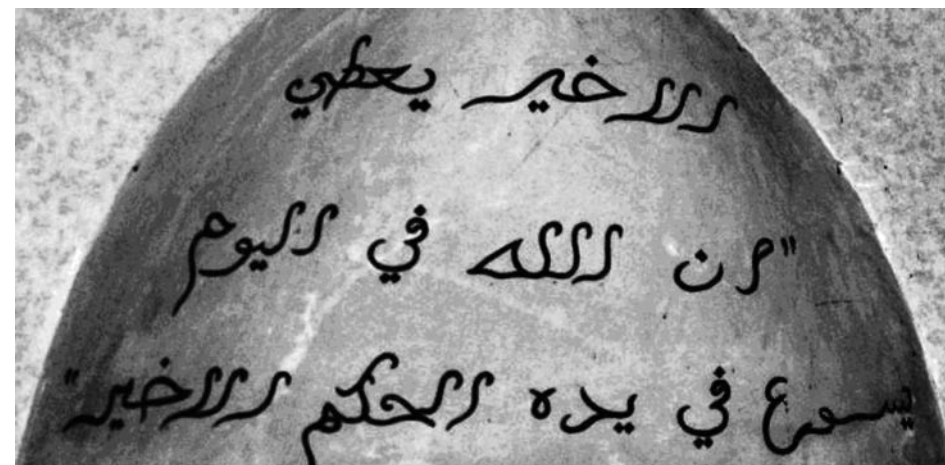 الاخير يعطي
"ان الله في اليوم
يسوع في يده الحكم الاخير"